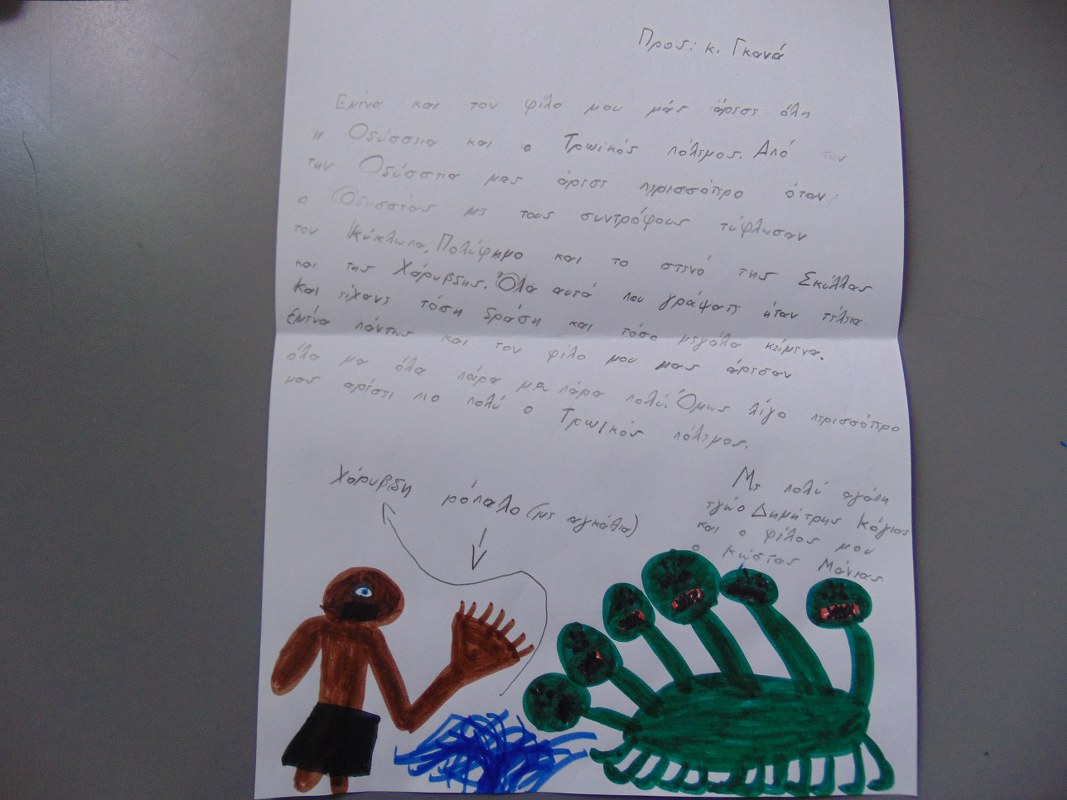 Προς: κ. Γκανά
Εμένα και τον φίλο μου μάς άρεσε όλη
η Οδύσσεια και ο Τρωικός πόλεμος. Από τον
την Οδύσσεια μας άρεσε περισσότερο όταν
ο Οδυσσέας με τους συντρόφους τύφλωσαν
τον Κύκλωπα, Πολύφημο και το στενό της Σκύλλας
και της Χάρυβδης. Όλα αυτά που γράψατε ήταν τέλεια
και είχανε τόση δράση και τόσο μεγάλα κείμενα.
Εμένα πάντως και τον φίλο μου μας άρεσαν
όλα μα όλα πάρα μα πάρα πολύ. Όμως λίγο περισσότερο
μας αρέσει πιο πολύ ο Τρωικός πόλεμος.
Χάρυβδη ρόπαλο (με αγκάθια)
Με πολύ αγάπη
εγώ ο Δημήτρης Κόγιας
και ο φίλος μου
ο Κώστας Μάνιας